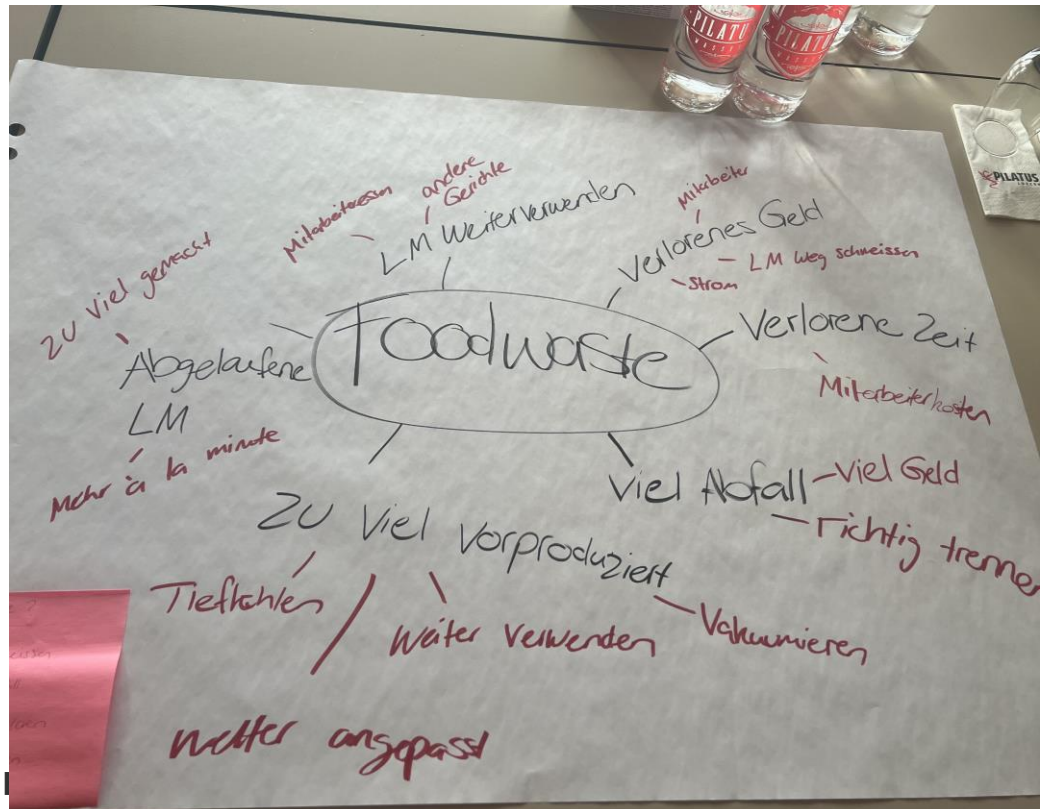 PILATU
WASSER
PILATU
PILATUS
Foodwaste
LM Weiterverwenden
Mitarbeiteressen
andere
Gerichte
Verlorenes Geld
Mitarbeiter
LM weg schmeissen
Strom
Verlorene Zeit
Mitarbeiterkosten
Viel Abfall
Viel Geld
richtig trennen
Zu Viel Vorproduziert
Tiefkühlen
Weiter verwenden
Vakuumieren
wetter angepasst
Abgelaufene
LM
Zu viel gemacht
Mehr à la minute